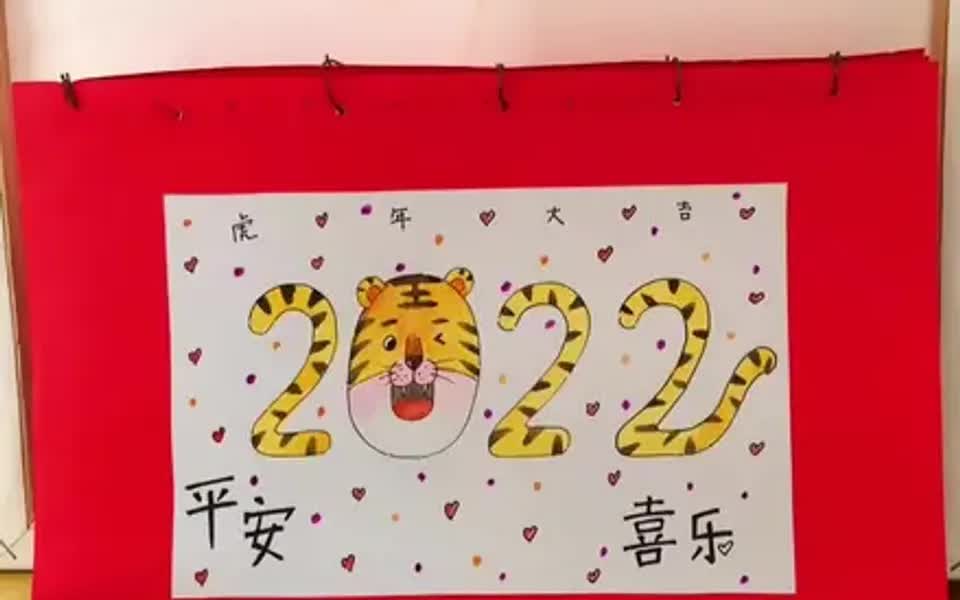 虎年大吉
2022
平安 喜乐